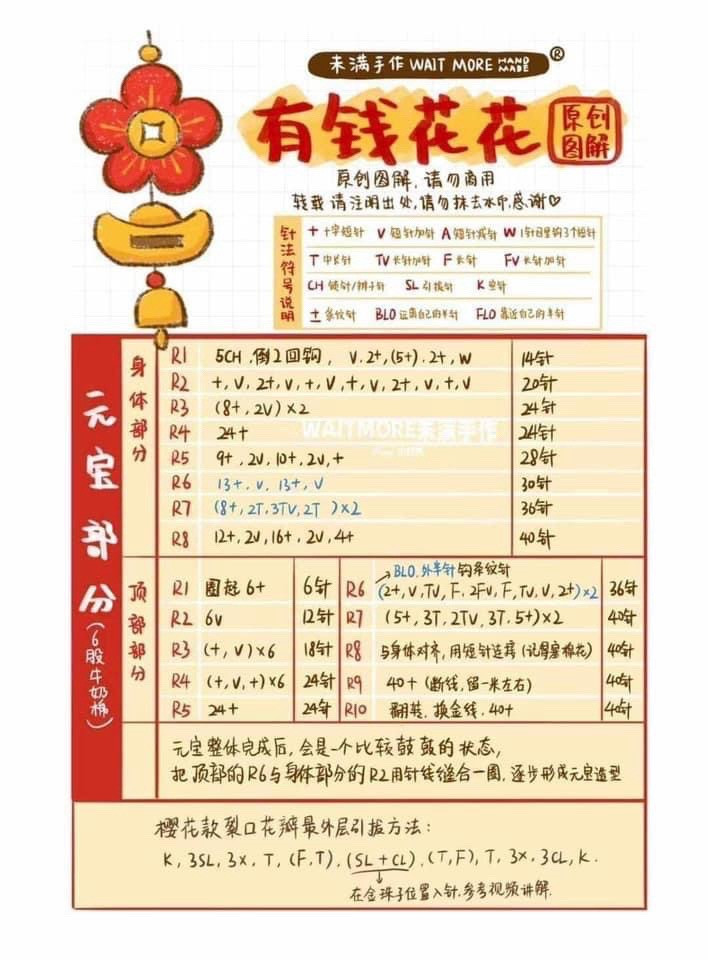 未满手作 WAIT MORE HAND MADE ®
有钱花花 原创图解
原创图解，请勿商用
转载请注明出处，请勿抹去水印，感谢♡
针法符号说明
+ 十字短针 V 短针加针 A 短针减针 W 1针目里钩3个短针
T 中长针 TV 长针加针 F 长针 FV 长针加针
CH 锁针/辫子针 SL 引拔针 K 空针
± 条纹针 BLO 远离自己的半针 FLO 靠近自己的半针
元宝部分(6股牛奶棉)
身体部分
R1 5CH，倒2回钩，V.2+,(5+).2+,W 14针
R2 +,V,2+,V,+,V,+,V,2+,V,+,V 20针
R3 (8+,2V)×2 24针
R4 24+ 24针
WAITMORE未满手作
R5 9+,2V,10+,2V,+ 28针
R6 13+,V,13+,V 30针
R7 (8+,2T,3TV,2T)×2 36针
R8 12+,2V,16+,2V,4+ 40针
顶部部分
R1 圈起6+ 6针
R2 6V 12针
R3 (+,V)×6 18针
R4 (+,V,+)×6 24针
R5 24+ 24针
BLO.外半针钩条纹针
R6 (2+,V,TV,F,2FV,F,TV,V,2+)×2 36针
R7 (5+,3T,2TV,3T,5+)×2 40针
R8 与身体对齐，用短针连接(记得塞棉花) 40针
R9 40+(断线，留一米左右) 40针
R10 翻转，换金线，40+ 40针
元宝整体完成后，会是一个比较鼓鼓的状态，
把顶部的R6与身体部分的R2用针线缝合一圈，逐步形成元宝造型
樱花款裂口花瓣最外层引拔方法：
K,3SL,3×,T,(F,T),(SL+CL),(T,F),T,3×,3CL,K.
在金珠子位置入针，参考视频讲解.